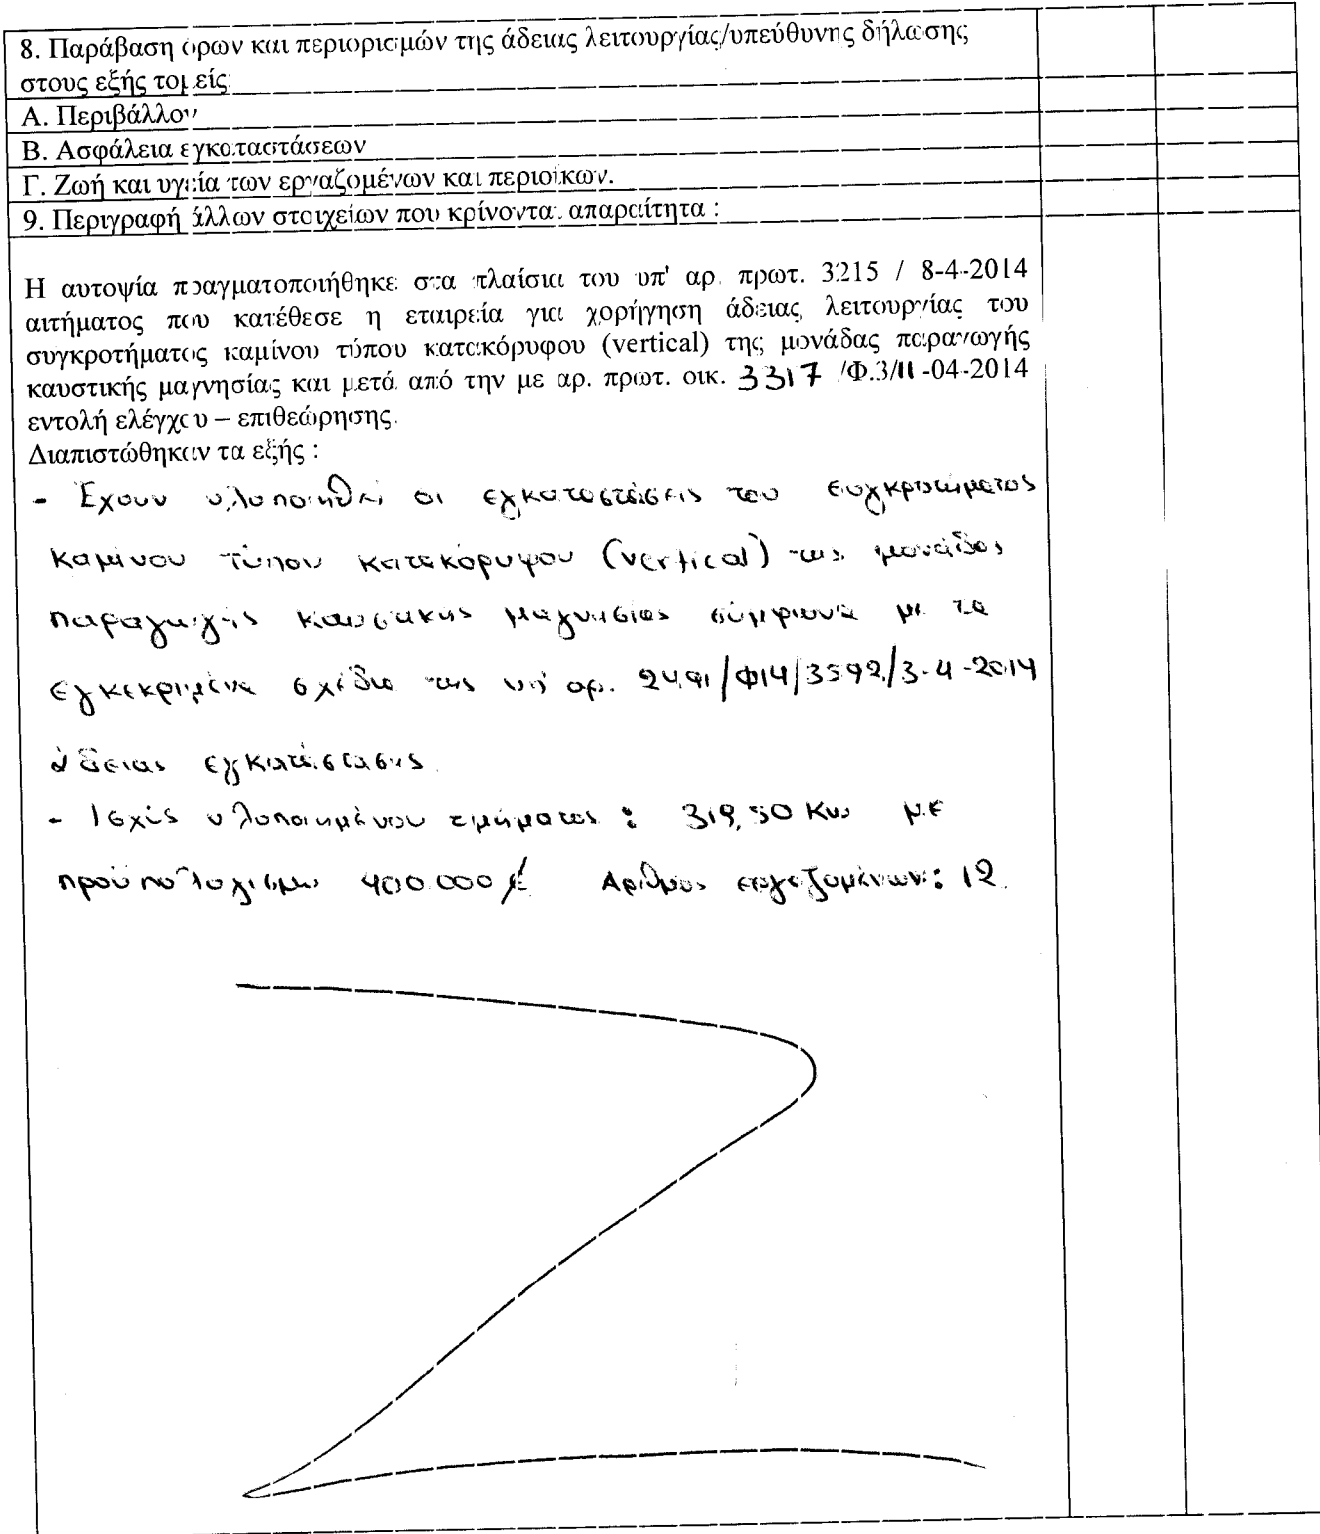 8. Παράβαση όρων και περιορισμών της άδειας λειτουργίας/υπεύθυνης δήλωσης
στους εξής τομείς
Α. Περιβάλλον
Β. Ασφάλεια εγκαταστάσεων
Γ. Ζωή και υγεία των εργαζομένων και περιοίκων.
9. Περιγραφή άλλων στοιχείων που κρίνονται απαραίτητα :
Η αυτοψία πραγματοποιήθηκε στα πλαίσια του υπ' αρ. πρωτ. 3215 / 8-4-2014
αιτήματος που κατέθεσε η εταιρεία για χορήγηση άδειας λειτουργίας του
συγκροτήματος καμίνου τύπου κατακόρυφου (vertical) της μονάδας παραγωγής
καυστικής μαγνησίας και μετά από την με αρ. πρωτ. οικ. 3317 /Φ.3/11-04-2014
εντολή ελέγχου – επιθεώρησης.
Διαπιστώθηκαν τα εξής :
- Έχουν υλοποιηθεί οι εγκαταστάσεις του συγκροτήματος
καμίνου τύπου κατακόρυφου (vertical) της μονάδος
παραγωγής καυστικής μαγνησίας σύμφωνα με τα
εγκεκριμένα σχέδια της υπ' αρ. 2491/Φ14/3592/3-4-2014
άδειας εγκατάστασης
- Ισχύς υλοποιημένου τμήματος : 319,50 Kw με
προϋπολογισμό 400.000 € Αριθμός εργαζομένων : 12.